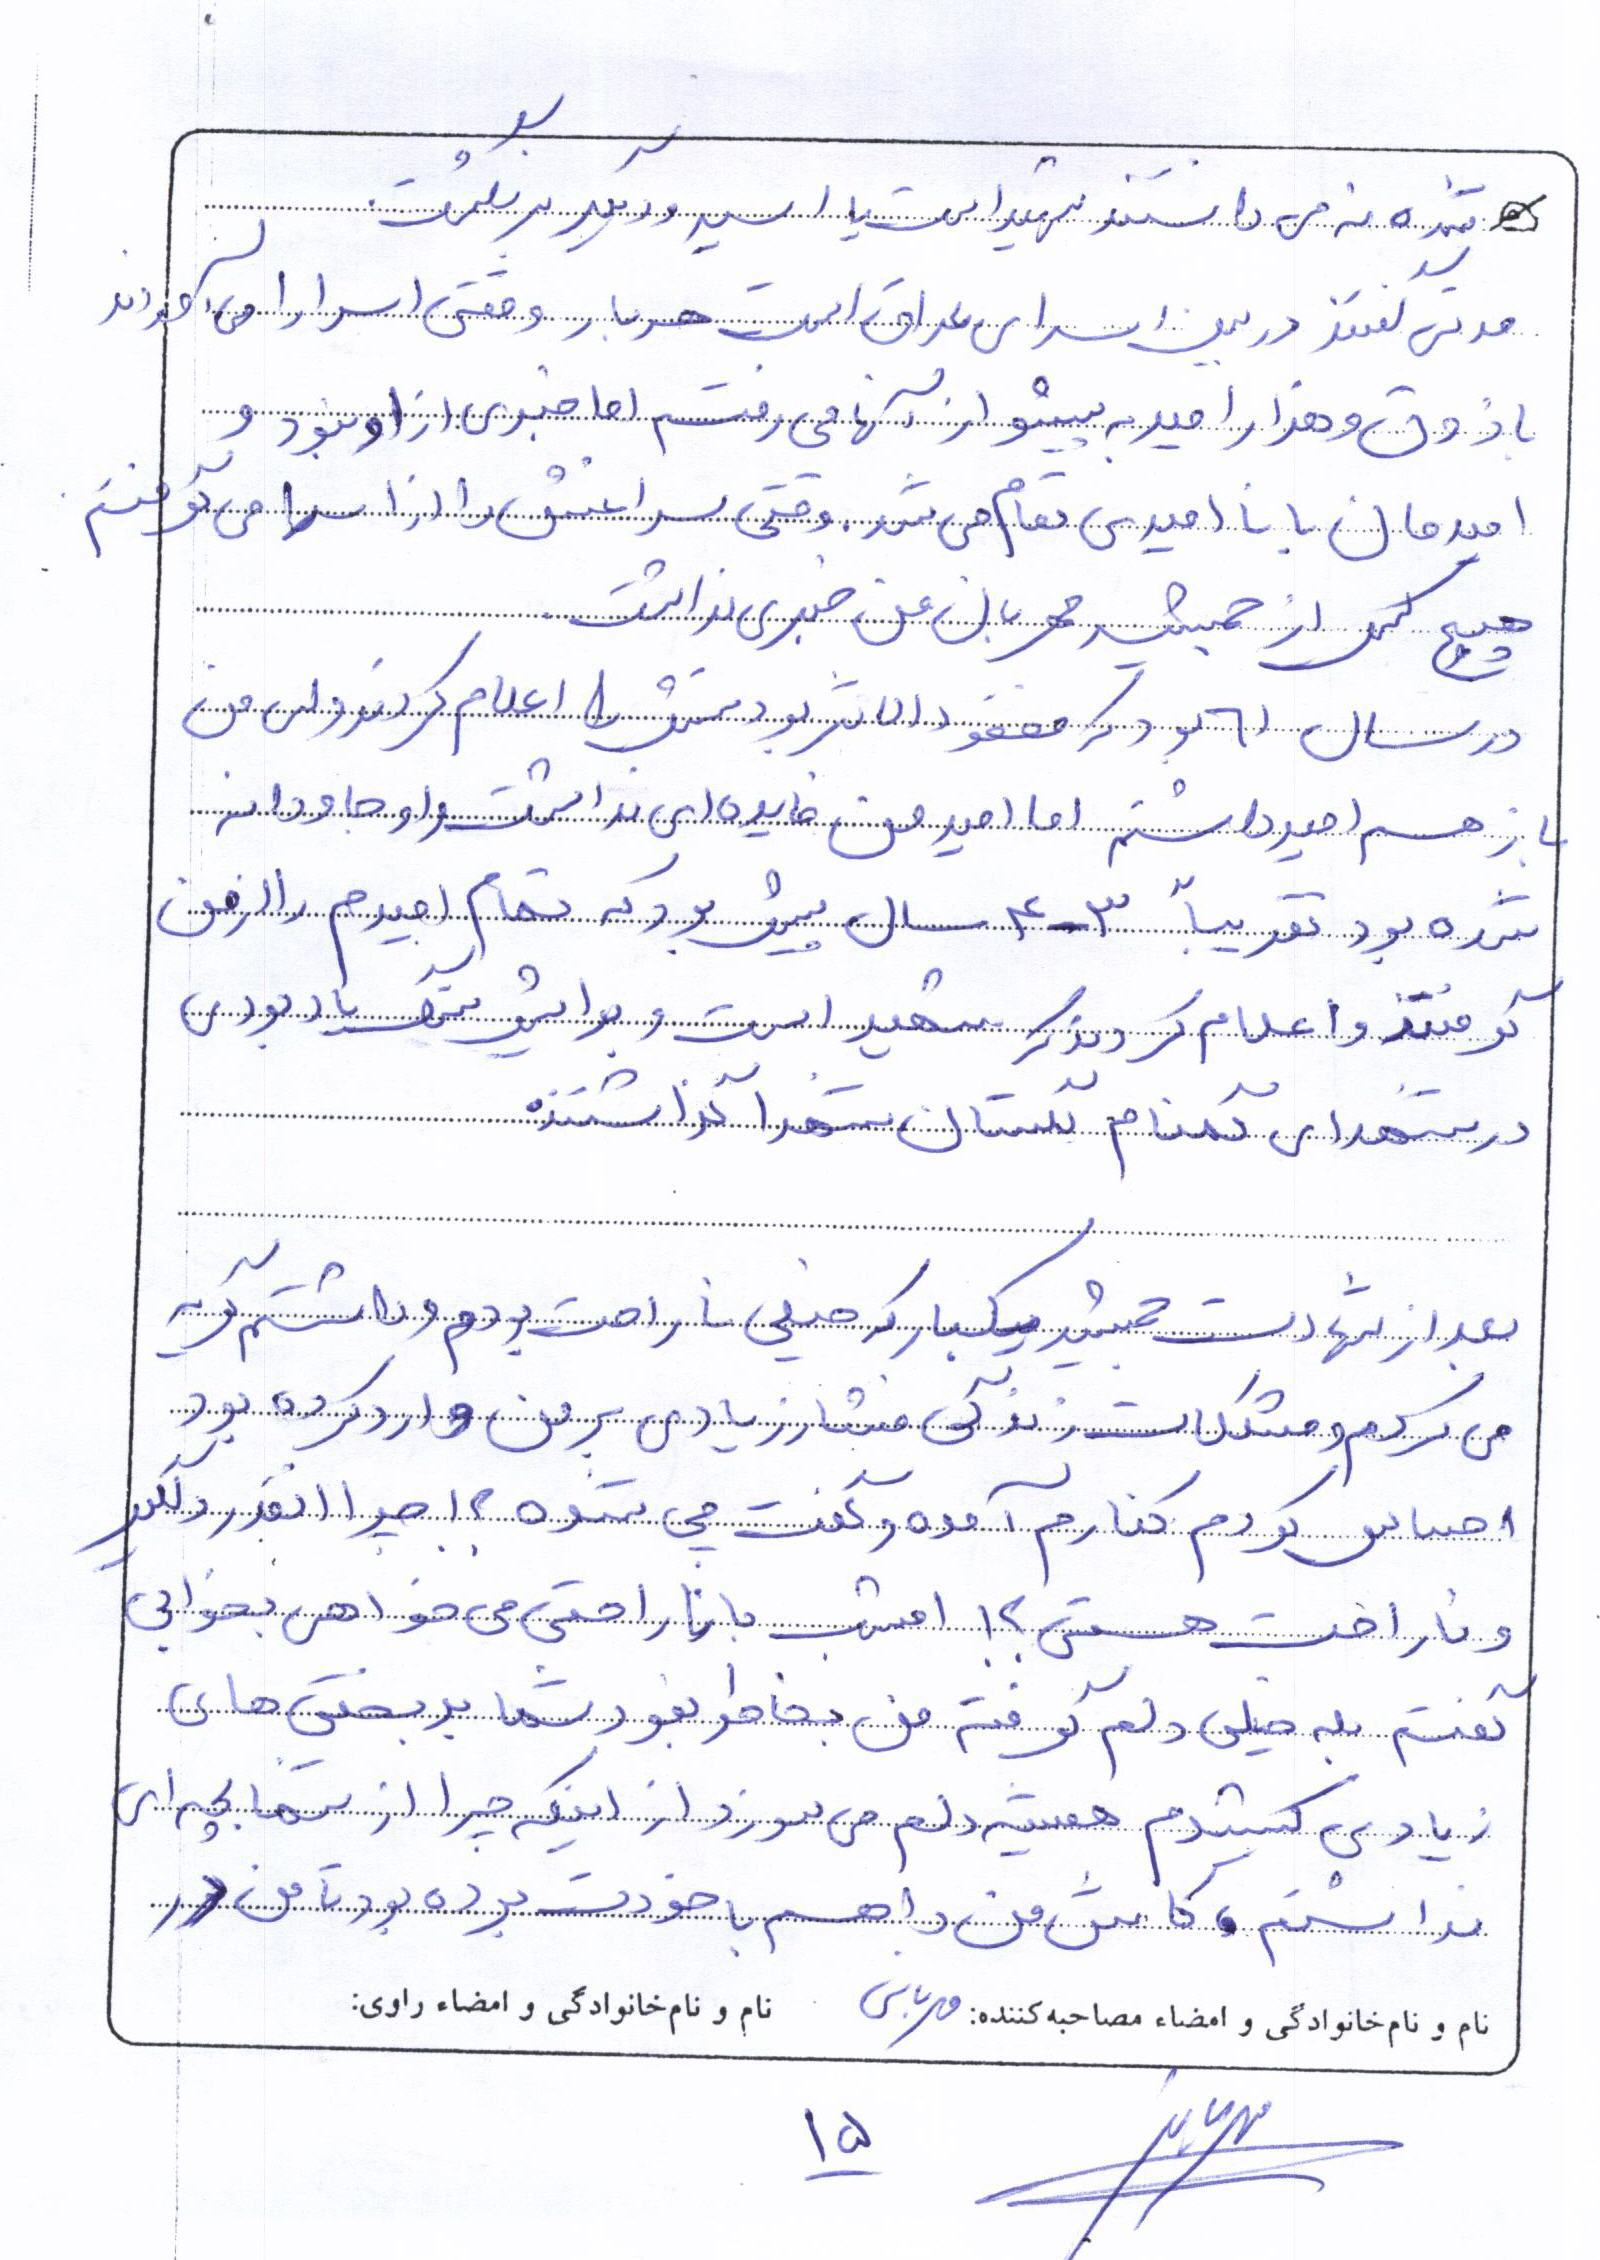 شده نه می دانستند شهید است یا اسیر و دیگر برنگشت.
مدتی گفتند در بین اسرای عراق است هر بار وقتی اسرا را می آوردند
با ذوق و هزار امید به پیشواز آنها می رفتم اما خبری از او نبود و
امیدمان با نا امیدی تمام می شد. وقتی سراغش را از اسرا می گرفتم
هیچ کس از جمشید مهربان من خبری نداشت.
در سال ٦١ بود که مفقود الاثر بودنش را اعلام کردند ولی من
باز هم امید داشتم اما امید من فایده ای نداشت و او جاودانه
شده بود تقریباً ۳-۴ سال پیش بود که تمام امیدم را از من
گرفتند و اعلام کردند که شهید است و برایش سنگ یادبودی
در شهدای گمنام گلستان شهدا گذاشتند
بعد از شهادت جمشید یکبار که خیلی ناراحت بودم و داشتم گریه
می کردم و مشکلات زندگی فشار زیادی بر من وارد کرده بود
احساس کردم کنارم آمده و گفت چی شده ؟! چرا انقدر دلگیر
و ناراحت هستی ؟! امشب با ناراحتی می خواهی بخوابی
گفتم بله خیلی دلم گرفته من بخاطر نبود شما بدبختی های
زیادی کشیدم همیشه دلم می سوزد از اینکه چرا از شما بچه ای
نداشتم، کاش من را هم با خودت برده بود تا من در
نام و نام‌خانوادگی و امضاء مصاحبه‌کننده: نام و نام‌خانوادگی و امضاء راوی:
۱۵